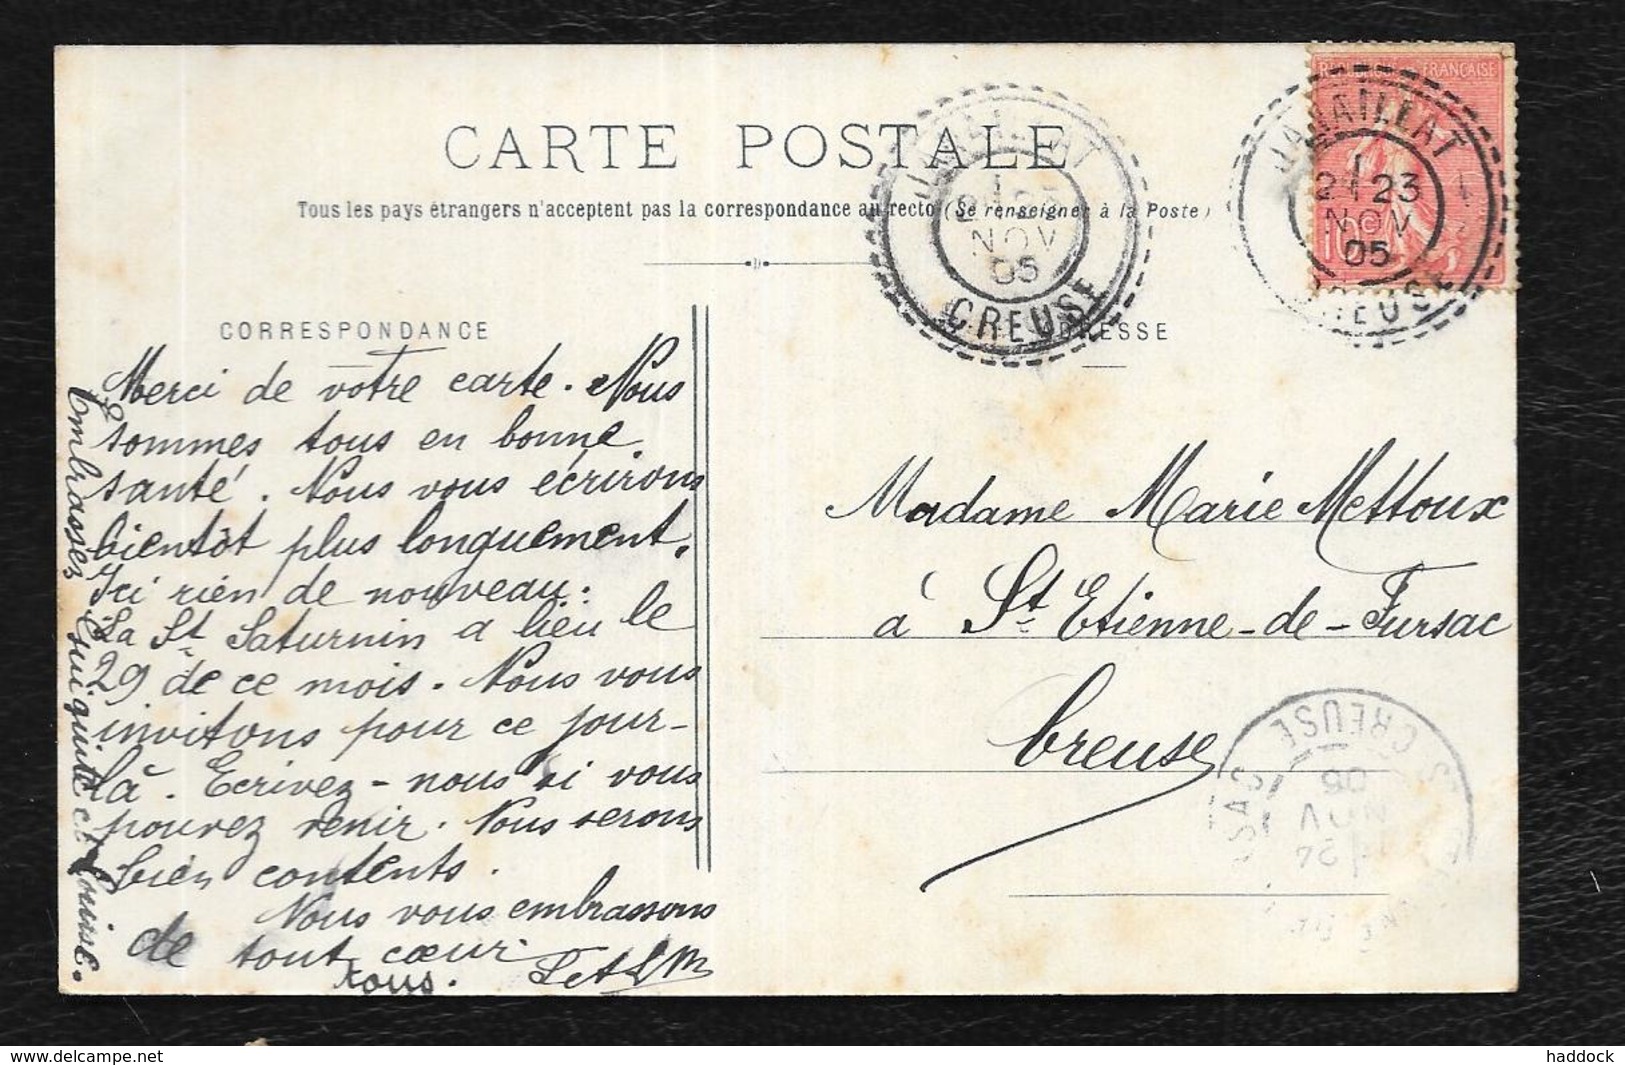 CARTE POSTALE
Tous les pays étrangers n'acceptent pas la correspondance au recto (Se renseigner à la Poste)
CORRESPONDANCE
ADRESSE
REPUBLIQUE FRANÇAISE
10 c
JANAILLAT
23
NOV
05
CREUSE
JANAILLAT
23
NOV
05
CREUSE
Merci de votre carte. Nous
sommes tous en bonne
santé. Nous vous écrirons
bientôt plus longuement.
Ici rien de nouveau:
La St Saturnin a lieu le
29 de ce mois. Nous vous
invitons pour ce jour-
là. Ecrivez-nous si vous
pouvez venir. Nous serons
bien contents.
Nous vous embrassons
de tout cœur
tous.
Embrassez et Louise.
Madame Marie Mettoux
à St Etienne-de-Fursac
Creuse
CREUSE
24
NOV
05
haddock